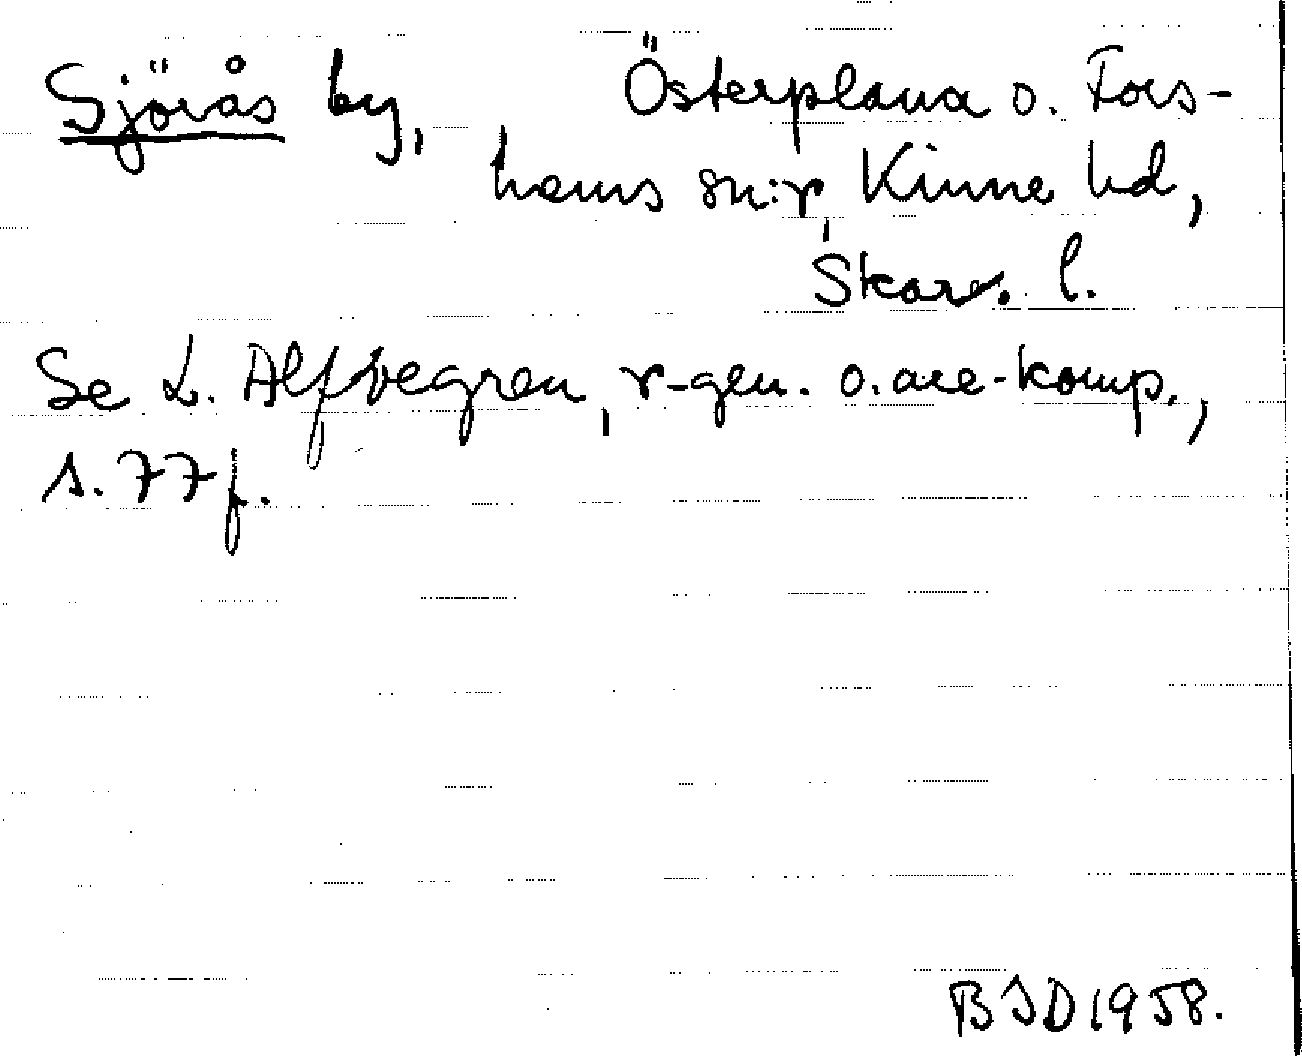 Sjörås by, Österplana o. Fors-
hems sn:r, Kinne hd,
Skarab. l.
Se L. Alfvegren, r-gen. o. are-komp.,
s. 77 f.
BID 1958.